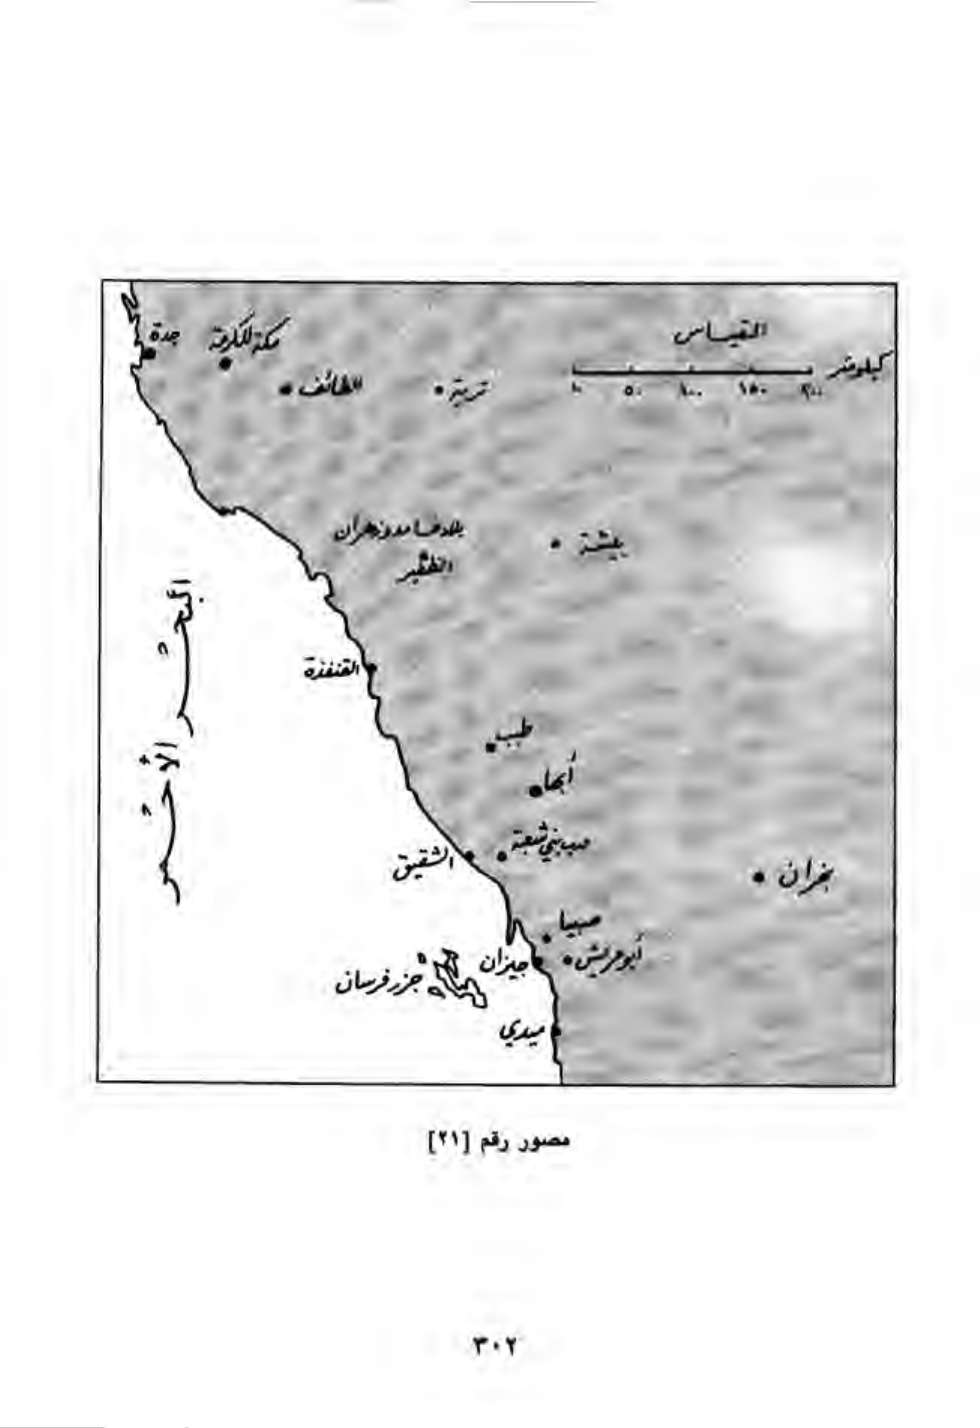 المقياس
كيلومتر
٠ ٥٠ ١٠٠ ١٥٠ ٢٠٠
جدة
مكة المكرمة
الطائف
تربة
بلاد غامد وزهران
الظفير
بيشة
البحر الأحمر
القنفذة
طبب
أبها
درب بني شعبة
الشقيق
نجران
صبيا
أبو عريش
جيزان
جزر فرسان
ميدي
مصور رقم [٢١]
٣٠٢